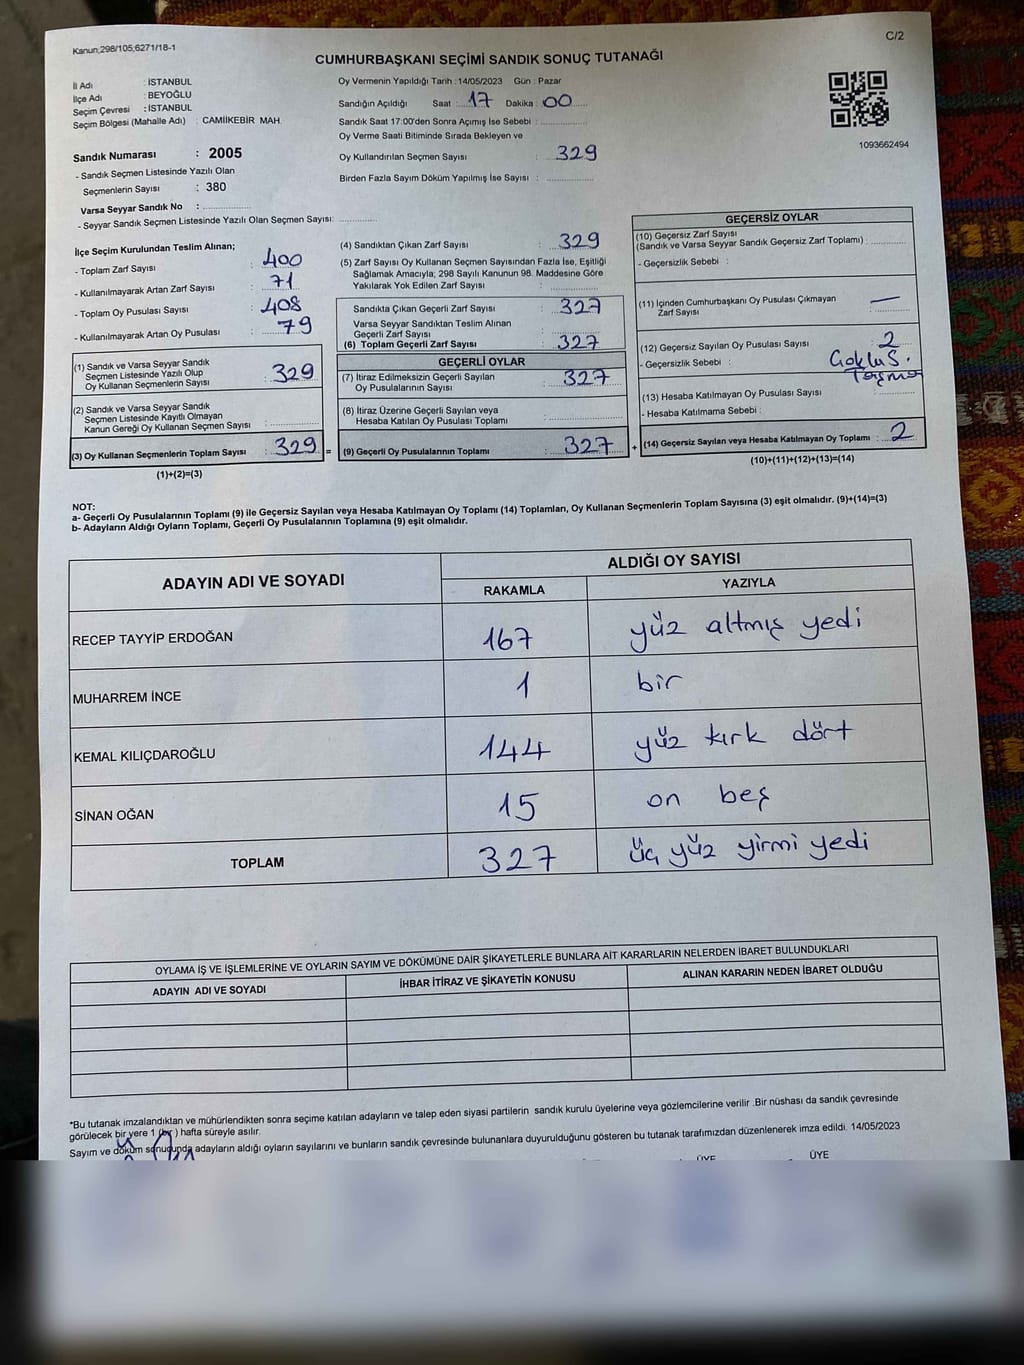 Kanun;298/105;6271/18-1
C/2
CUMHURBAŞKANI SEÇİMİ SANDIK SONUÇ TUTANAĞI
İl Adı : İSTANBUL
İlçe Adı : BEYOĞLU
Seçim Çevresi : İSTANBUL
Seçim Bölgesi (Mahalle Adı) : CAMİİKEBİR MAH
Sandık Numarası : 2005
- Sandık Seçmen Listesinde Yazılı Olan
Seçmenlerin Sayısı : 380
Varsa Seyyar Sandık No :
- Seyyar Sandık Seçmen Listesinde Yazılı Olan Seçmen Sayısı:
Oy Vermenin Yapıldığı Tarih : 14/05/2023 Gün : Pazar
Sandığın Açıldığı Saat : 17 Dakika : 00
Sandık Saat 17:00'den Sonra Açımış İse Sebebi :
Oy Verme Saati Bitiminde Sırada Bekleyen ve
Oy Kullandırılan Seçmen Sayısı : 329
Birden Fazla Sayım Döküm Yapılmış İse Sayısı :
1093662494
İlçe Seçim Kurulundan Teslim Alınan;
- Toplam Zarf Sayısı : 400
- Kullanılmayarak Artan Zarf Sayısı : 71
- Toplam Oy Pusulası Sayısı : 408
- Kullanılmayarak Artan Oy Pusulası : 79
(1) Sandık ve Varsa Seyyar Sandık
Seçmen Listesinde Yazılı Olup
Oy Kullanan Seçmenlerin Sayısı : 329
(2) Sandık ve Varsa Seyyar Sandık
Seçmen Listesinde Kayıtlı Olmayan
Kanun Gereği Oy Kullanan Seçmen Sayısı :
(3) Oy Kullanan Seçmenlerin Toplam Sayısı : 329 =
(1)+(2)=(3)
(4) Sandıktan Çıkan Zarf Sayısı : 329
(5) Zarf Sayısı Oy Kullanan Seçmen Sayısından Fazla İse, Eşitliği
Sağlamak Amacıyla; 298 Sayılı Kanunun 98. Maddesine Göre
Yakılarak Yok Edilen Zarf Sayısı :
Sandıkta Çıkan Geçerli Zarf Sayısı : 327
Varsa Seyyar Sandıktan Teslim Alınan
Geçerli Zarf Sayısı :
(6) Toplam Geçerli Zarf Sayısı : 327
GEÇERLİ OYLAR
(7) İtiraz Edilmeksizin Geçerli Sayılan
Oy Pusulalarının Sayısı : 327
(8) İtiraz Üzerine Geçerli Sayılan veya
Hesaba Katılan Oy Pusulası Toplamı :
(9) Geçerli Oy Pusulalarının Toplamı : 327 +
GEÇERSİZ OYLAR
(10) Geçersiz Zarf Sayısı
(Sandık ve Varsa Seyyar Sandık Geçersiz Zarf Toplamı) :
- Geçersizlik Sebebi :
(11) İçinden Cumhurbaşkanı Oy Pusulası Çıkmayan
Zarf Sayısı : —
(12) Geçersiz Sayılan Oy Pusulası Sayısı : 2
- Geçersizlik Sebebi :
(13) Hesaba Katılmayan Oy Pusulası Sayısı :
- Hesaba Katılmama Sebebi :
(14) Geçersiz Sayılan veya Hesaba Katılmayan Oy Toplamı : 2
(10)+(11)+(12)+(13)=(14)
NOT:
a- Geçerli Oy Pusulalarının Toplamı (9) ile Geçersiz Sayılan veya Hesaba Katılmayan Oy Toplamı (14) Toplamları, Oy Kullanan Seçmenlerin Toplam Sayısına (3) eşit olmalıdır. (9)+(14)=(3)
b- Adayların Aldığı Oyların Toplamı, Geçerli Oy Pusulalarının Toplamına (9) eşit olmalıdır.
ADAYIN ADI VE SOYADI
ALDIĞI OY SAYISI
RAKAMLA YAZIYLA
RECEP TAYYİP ERDOĞAN 167 yüz altmış yedi
MUHARREM İNCE 1 bir
KEMAL KILIÇDAROĞLU 144 yüz kırk dört
SİNAN OĞAN 15 on beş
TOPLAM 327 üç yüz yirmi yedi
OYLAMA İŞ VE İŞLEMLERİNE VE OYLARIN SAYIM VE DÖKÜMÜNE DAİR ŞİKAYETLERLE BUNLARA AİT KARARLARIN NELERDEN İBARET BULUNDUKLARI
ADAYIN ADI VE SOYADI İHBAR İTİRAZ VE ŞİKAYETİN KONUSU ALINAN KARARIN NEDEN İBARET OLDUĞU
*Bu tutanak imzalandıktan ve mühürlendikten sonra seçime katılan adayların ve talep eden siyasi partilerin sandık kurulu üyelerine veya gözlemcilerine verilir .Bir nüshası da sandık çevresinde
görülecek bir yere 1 (bir ) hafta süreyle asılır.
Sayım ve döküm sonucunda adayların aldığı oyların sayılarını ve bunların sandık çevresinde bulunanlara duyurulduğunu gösteren bu tutanak tarafımızdan düzenlenerek imza edildi. 14/05/2023
ÜYE ÜYE